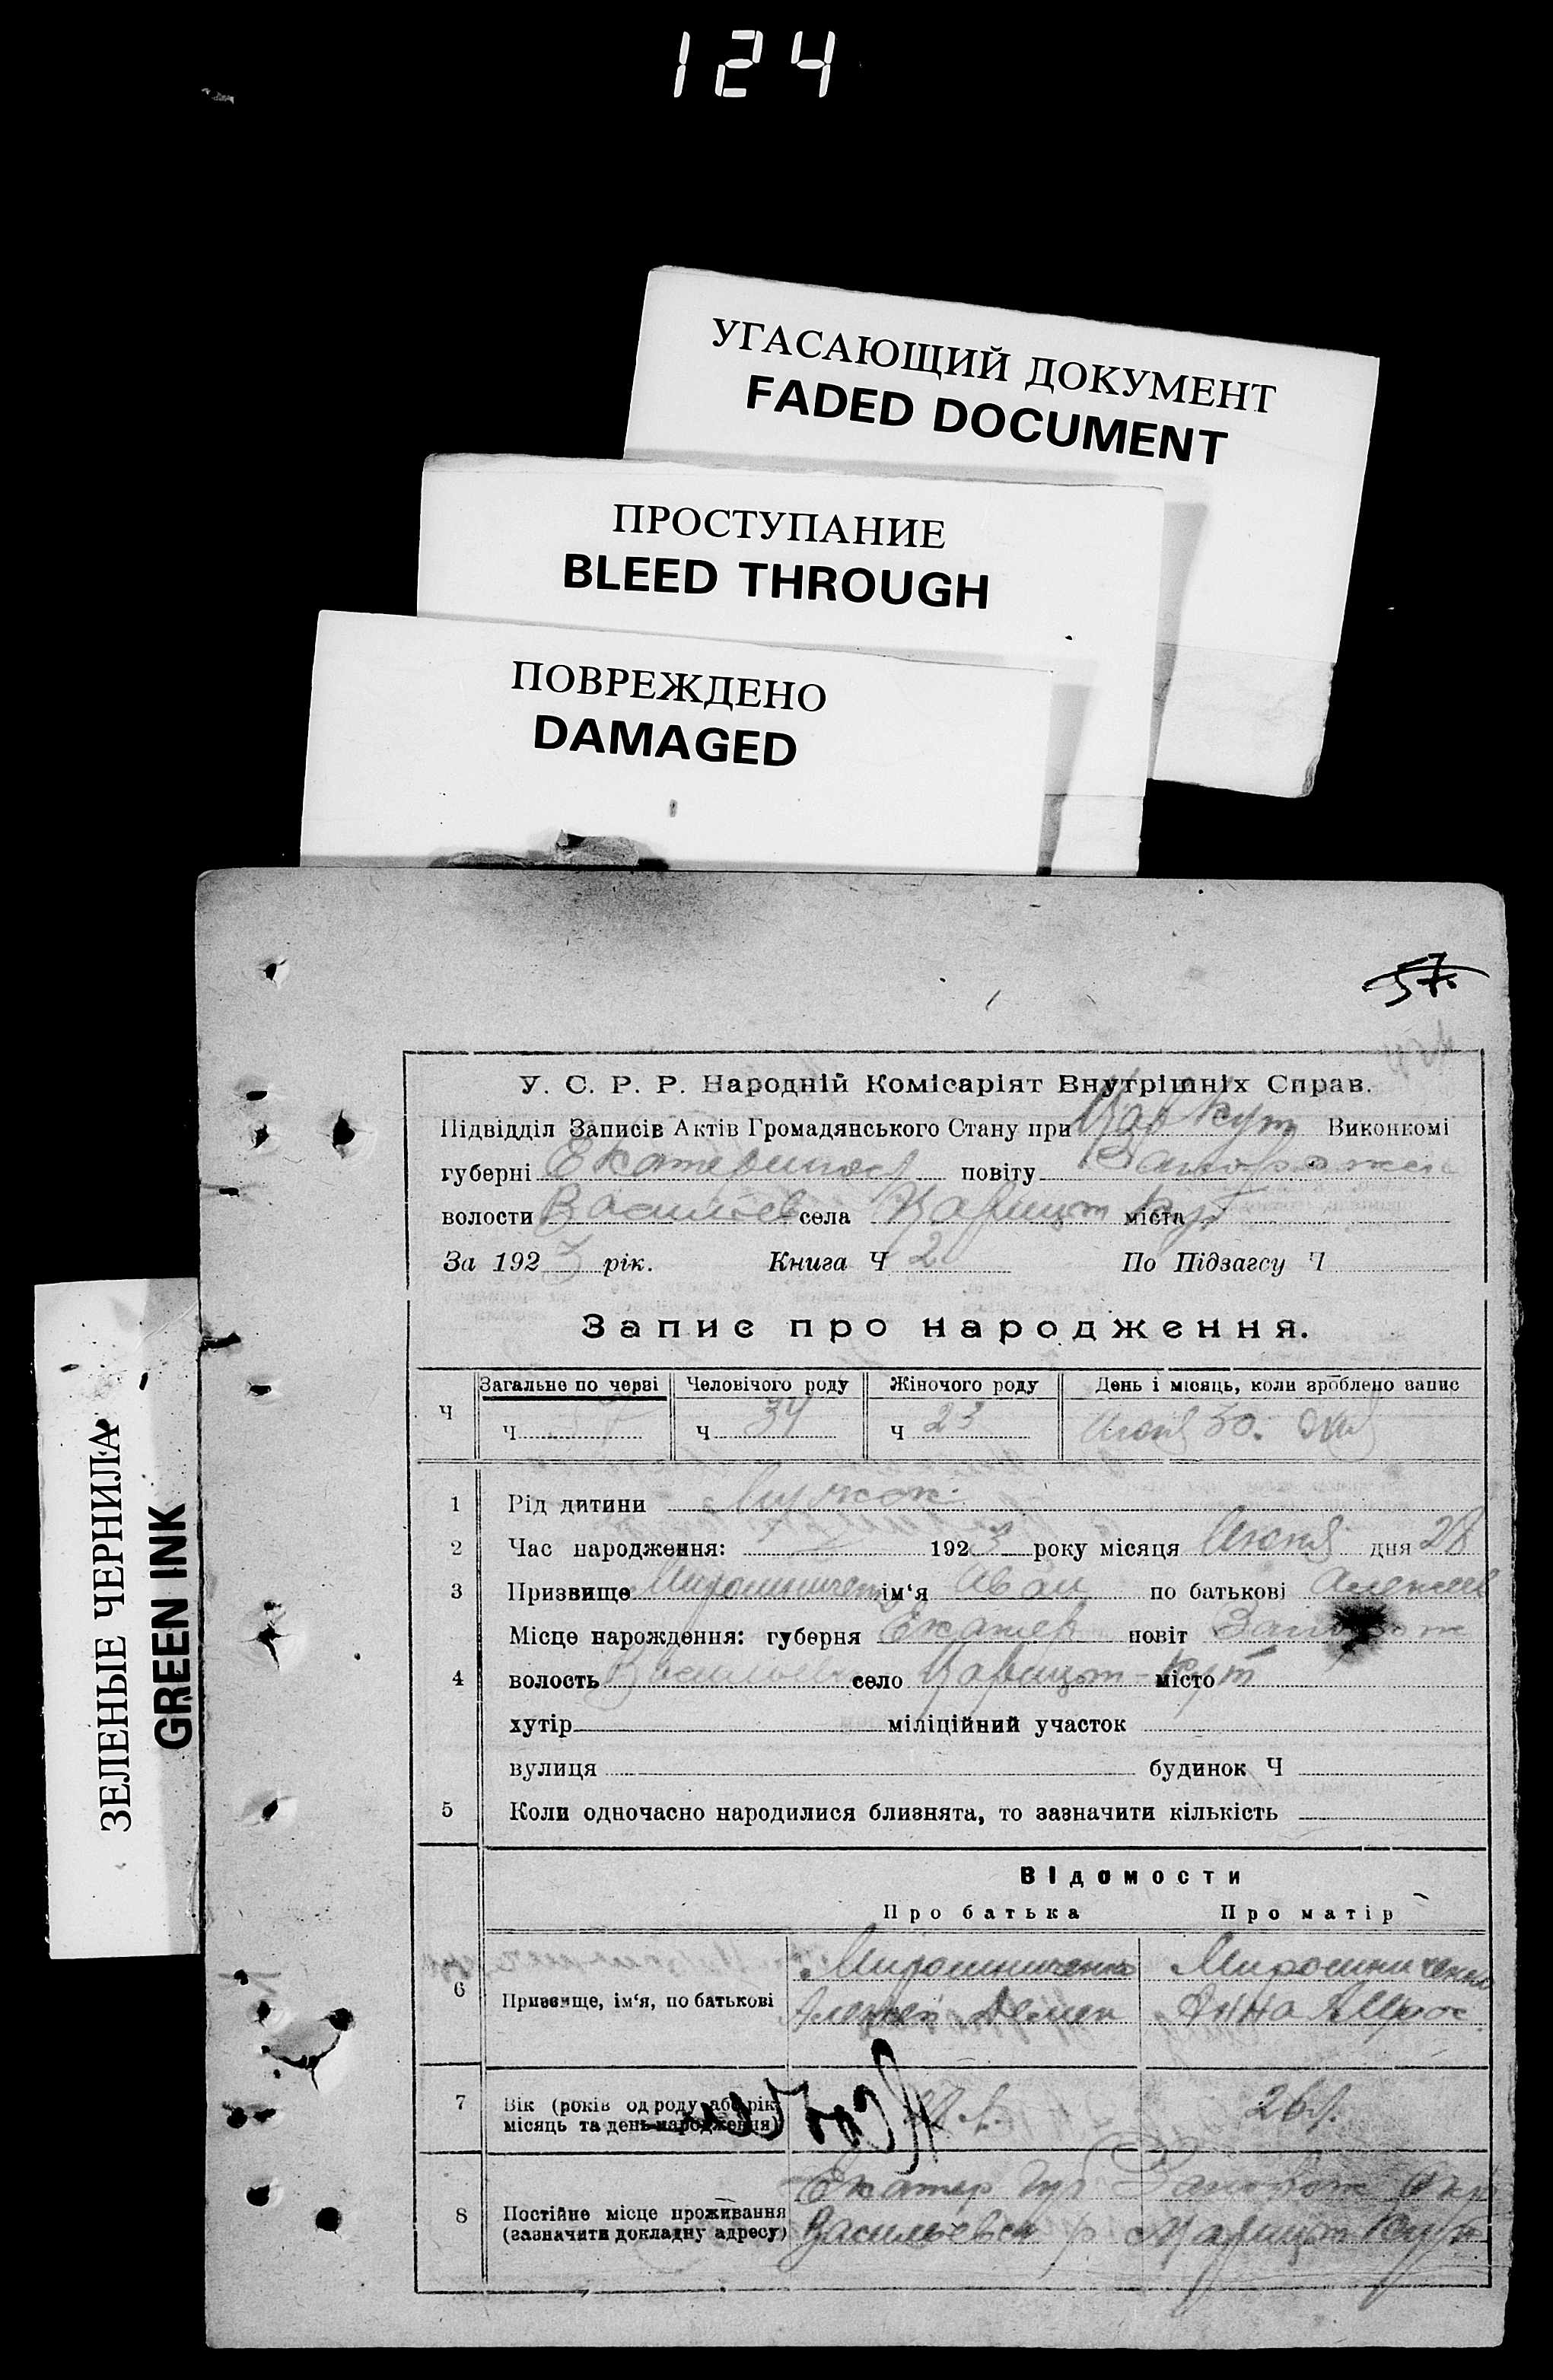 124
УГАСАЮЩИЙ ДОКУМЕНТ
FADED DOCUMENT
ПРОСТУПАНИЕ
BLEED THROUGH
ПОВРЕЖДЕНО
DAMAGED
ЗЕЛЕНЫЕ ЧЕРНИЛА
GREEN INK
57.
У. С. Р. Р. Народній Комісаріят Внутрішніх Справ.
Підвідділ Записів Актів Громадянського Стану при Цар Кут Виконкомі
губерні Екатеринос повіту Запорожск
волости Васильев села Царицын міста Кут
За 1923 рік. Книга Ч 2 По Підзагсу Ч
Запис про народження.
Ч Загальне по черві Человічого роду Жіночого роду День і місяць, коли зроблено запис
Ч Ч 34 Ч 23 Июня 30. дня
1 Рід дитини Мужск.
2 Час народження: 1923 року місяця Июня дня 28
3 Призвище Мирошниченко ім‘я Иван по батькові Алексее
Місце нарождення: губерня Екатер повіт Запорож
4 волость Васильев село Царицын-Кут місто
хутір міліційний участок
вулиця будинок Ч
5 Коли одночасно народилися близнята, то зазначити кількість
Відомости
Про батька Про матір
6 Призвище, ім‘я, по батькові Мирошниченко Мирошниченко
Алексей Демен Анна
7 Вік (років од роду або рік, 26 л.
місяць та день народження)
Екатер губ Запорож Окр
8 Постійне місце проживання
(зазначити докладну адресу) Васильевск р Царицын Кут